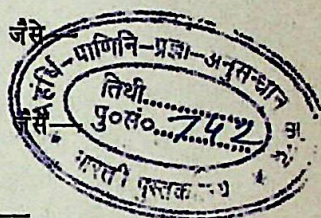 जैसे—
महर्षि-पाणिनि-प्रज्ञा-अनुसन्धान
तिथी..............
पु०सं०...742
जैसे—